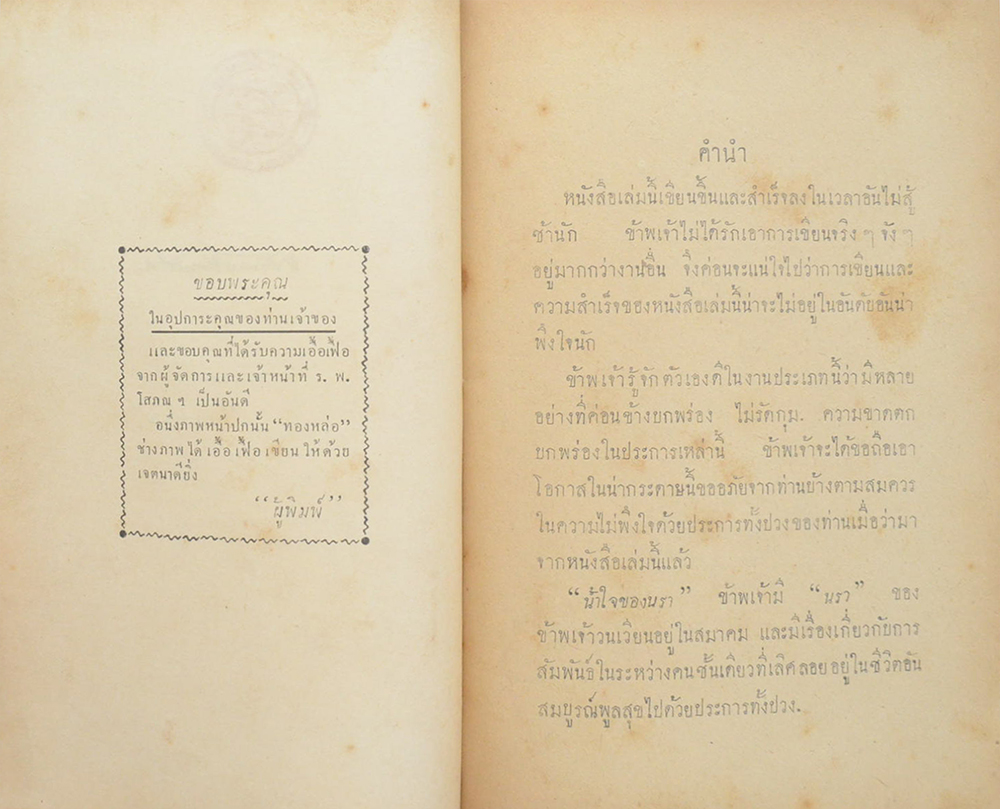 ขอบพระคุณ
ในอุปการะคุณของท่านเจ้าของ
และขอบคุณที่ได้รับความเอื้อเฟื้อ
จากผู้จัดการและเจ้าหน้าที่ ร. พ.
โสภณ ฯ เป็นอันดี
อนึ่งภาพหน้าปกนั้น “ทองหล่อ”
ช่างภาพได้เอื้อเฟื้อเขียนให้ด้วย
เจตนาดียิ่ง
“ผู้พิมพ์”
คำนำ
หนังสือเล่มนี้เขียนขึ้นและสำเร็จลงในเวลาอันไม่สู้
ช้านัก ข้าพเจ้าไม่ได้รักเอาการเขียนจริง ๆ จัง ๆ
อยู่มากกว่างานอื่น จึ่งค่อนจะแน่ใจไปว่าการเขียนและ
ความสำเร็จของหนังสือเล่มนี้น่าจะไม่อยู่ในอันดับอันน่า
พึงใจนัก
ข้าพเจ้ารู้จักตัวเองดีในงานประเภทนี้ว่ามีหลาย
อย่างที่ค่อนข้างบกพร่อง ไม่รัดกุม. ความขาดตก
บกพร่องในประการเหล่านี้ ข้าพเจ้าจะได้ขอถือเอา
โอกาสในน่ากระดาษนี้ขออภัยจากท่านบ้างตามสมควร
ในความไม่พึงใจด้วยประการทั้งปวงของท่านเมื่อว่ามา
จากหนังสือเล่มนี้แล้ว
“น้ำใจของนรา” ข้าพเจ้ามี “นรา” ของ
ข้าพเจ้าวนเวียนอยู่ในสมาคม และมีเรื่องเกี่ยวกับการ
สัมพันธ์ในระหว่างคนชั้นเดียวที่เลิศลอยอยู่ในชีวิตอัน
สมบูรณ์พูลสุขไปด้วยประการทั้งปวง.